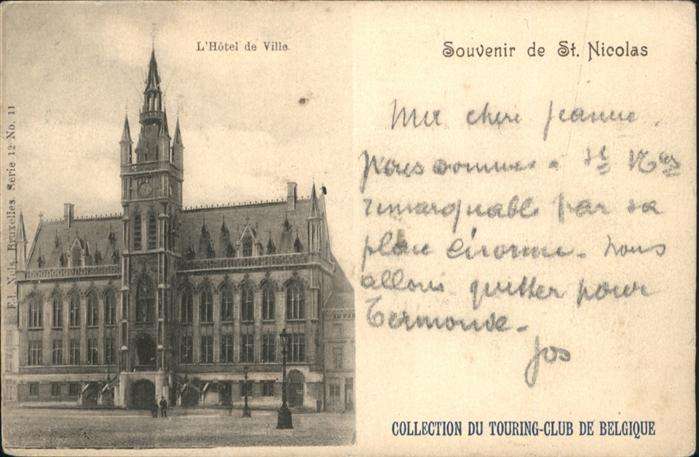 L'Hôtel de Ville.
Souvenir de St. Nicolas
Ma chère Jeanne.
Nous sommes à St Nicolas
remarquable par sa
place énorme. Nous
allons quitter pour
Termonde.
Jos
Série 12 No. 11
COLLECTION DU TOURING-CLUB DE BELGIQUE